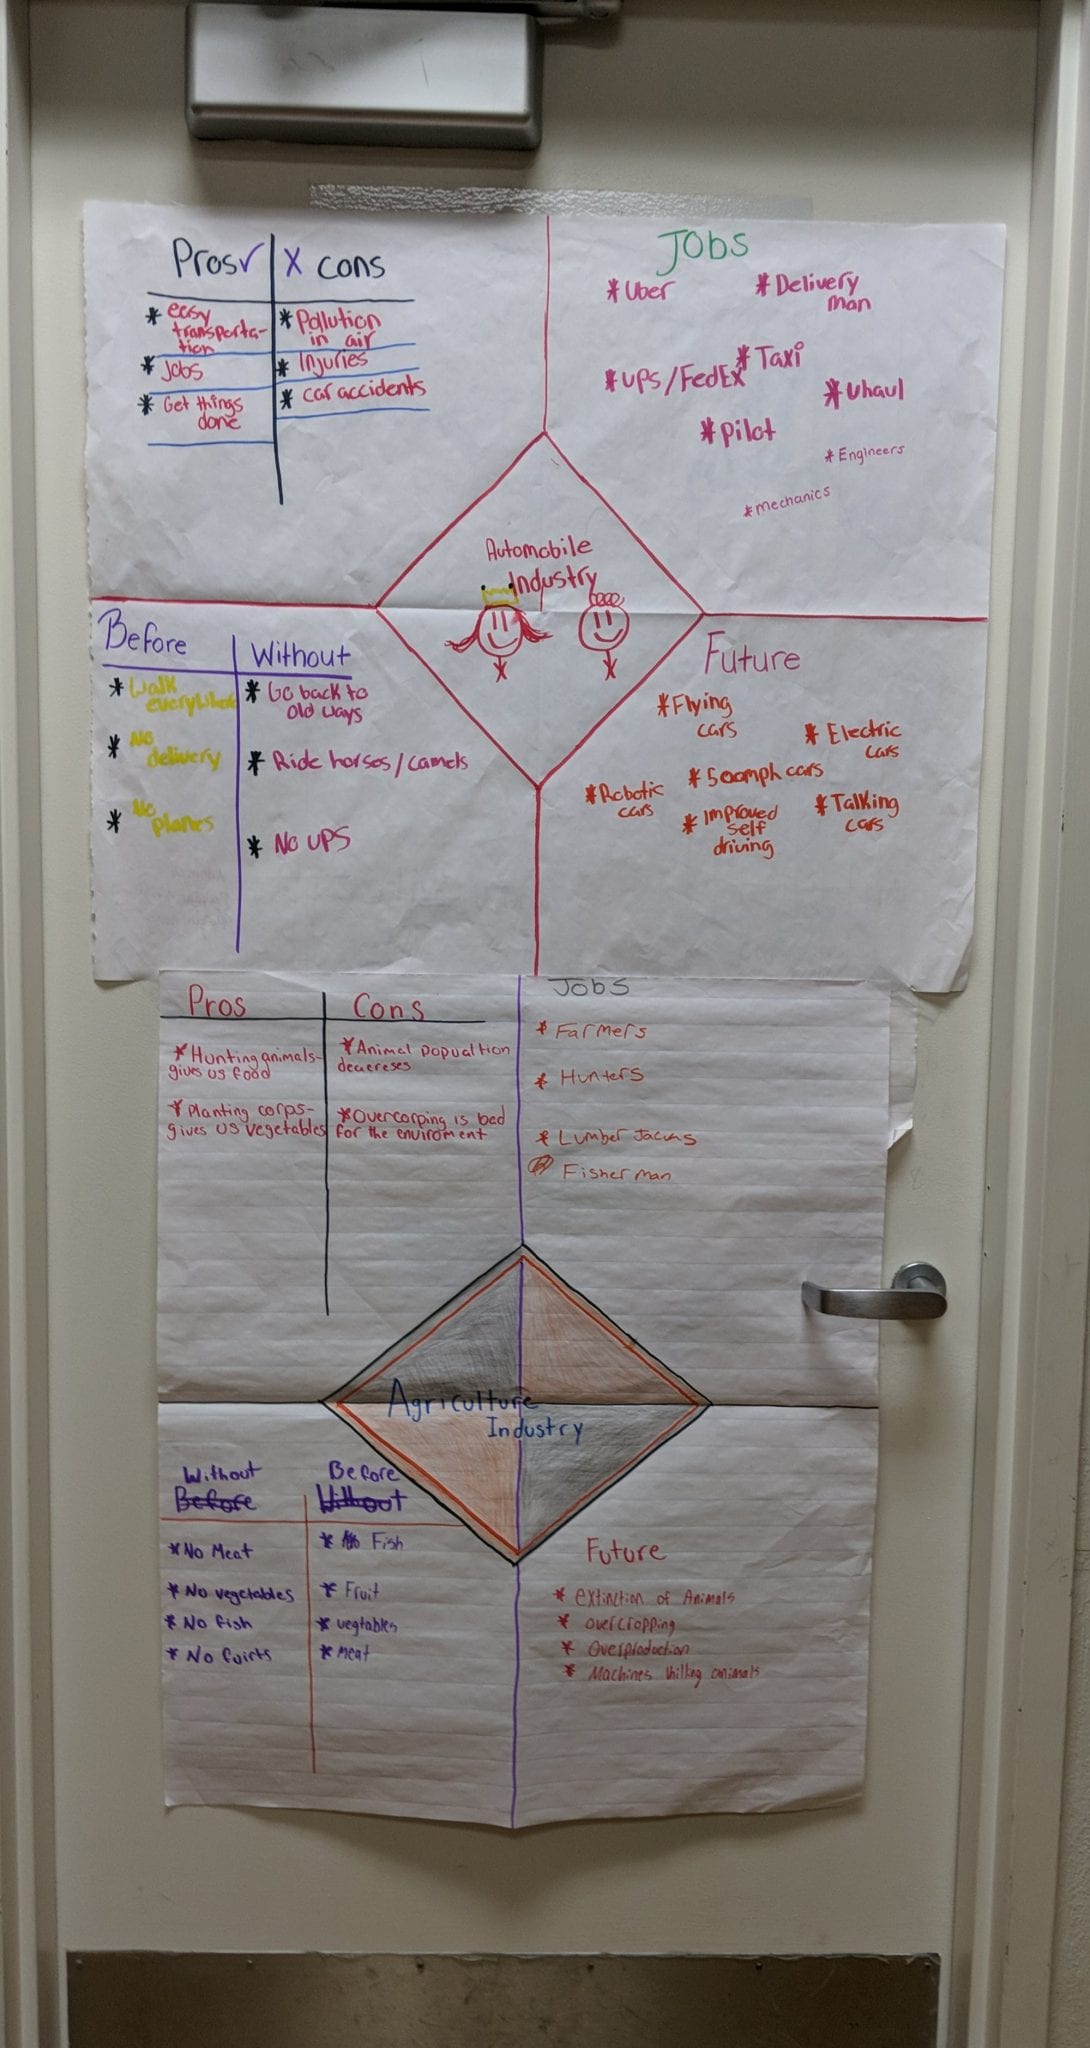 Pros✓ X cons
* easy
transporta-
tion
* Jobs
* Get things
done
* Pollution
in air
* Injuries
* car accidents
Jobs
* Uber
* Delivery
man
* UPS/FedEx
* Taxi
* Uhaul
* Pilot
* Engineers
* mechanics
Automobile
Industry
Before
* Walk
everywhere
* No
delivery
* No
planes
Without
* Go back to
old ways
* Ride horses/camels
* No UPS
Future
* Flying
cars
* Electric
cars
* 500mph cars
* Robotic
cars
* Improved
self
driving
* Talking
cars
Pros
* Hunting animals-
gives us food
* Planting corps-
gives us vegetables
Cons
* Animal popualtion
decereses
* Overcorping is bad
for the enviroment
Jobs
* Farmers
* Hunters
* Lumber Jacks
Fisher man
Agriculture
Industry
Without
Before
* No Meat
* No vegetables
* No fish
* No fuirts
Before
Without
* Fish
* Fruit
* vegtables
* meat
Future
* extinction of Animals
* overcropping
* Overproduction
* Machines killing animals